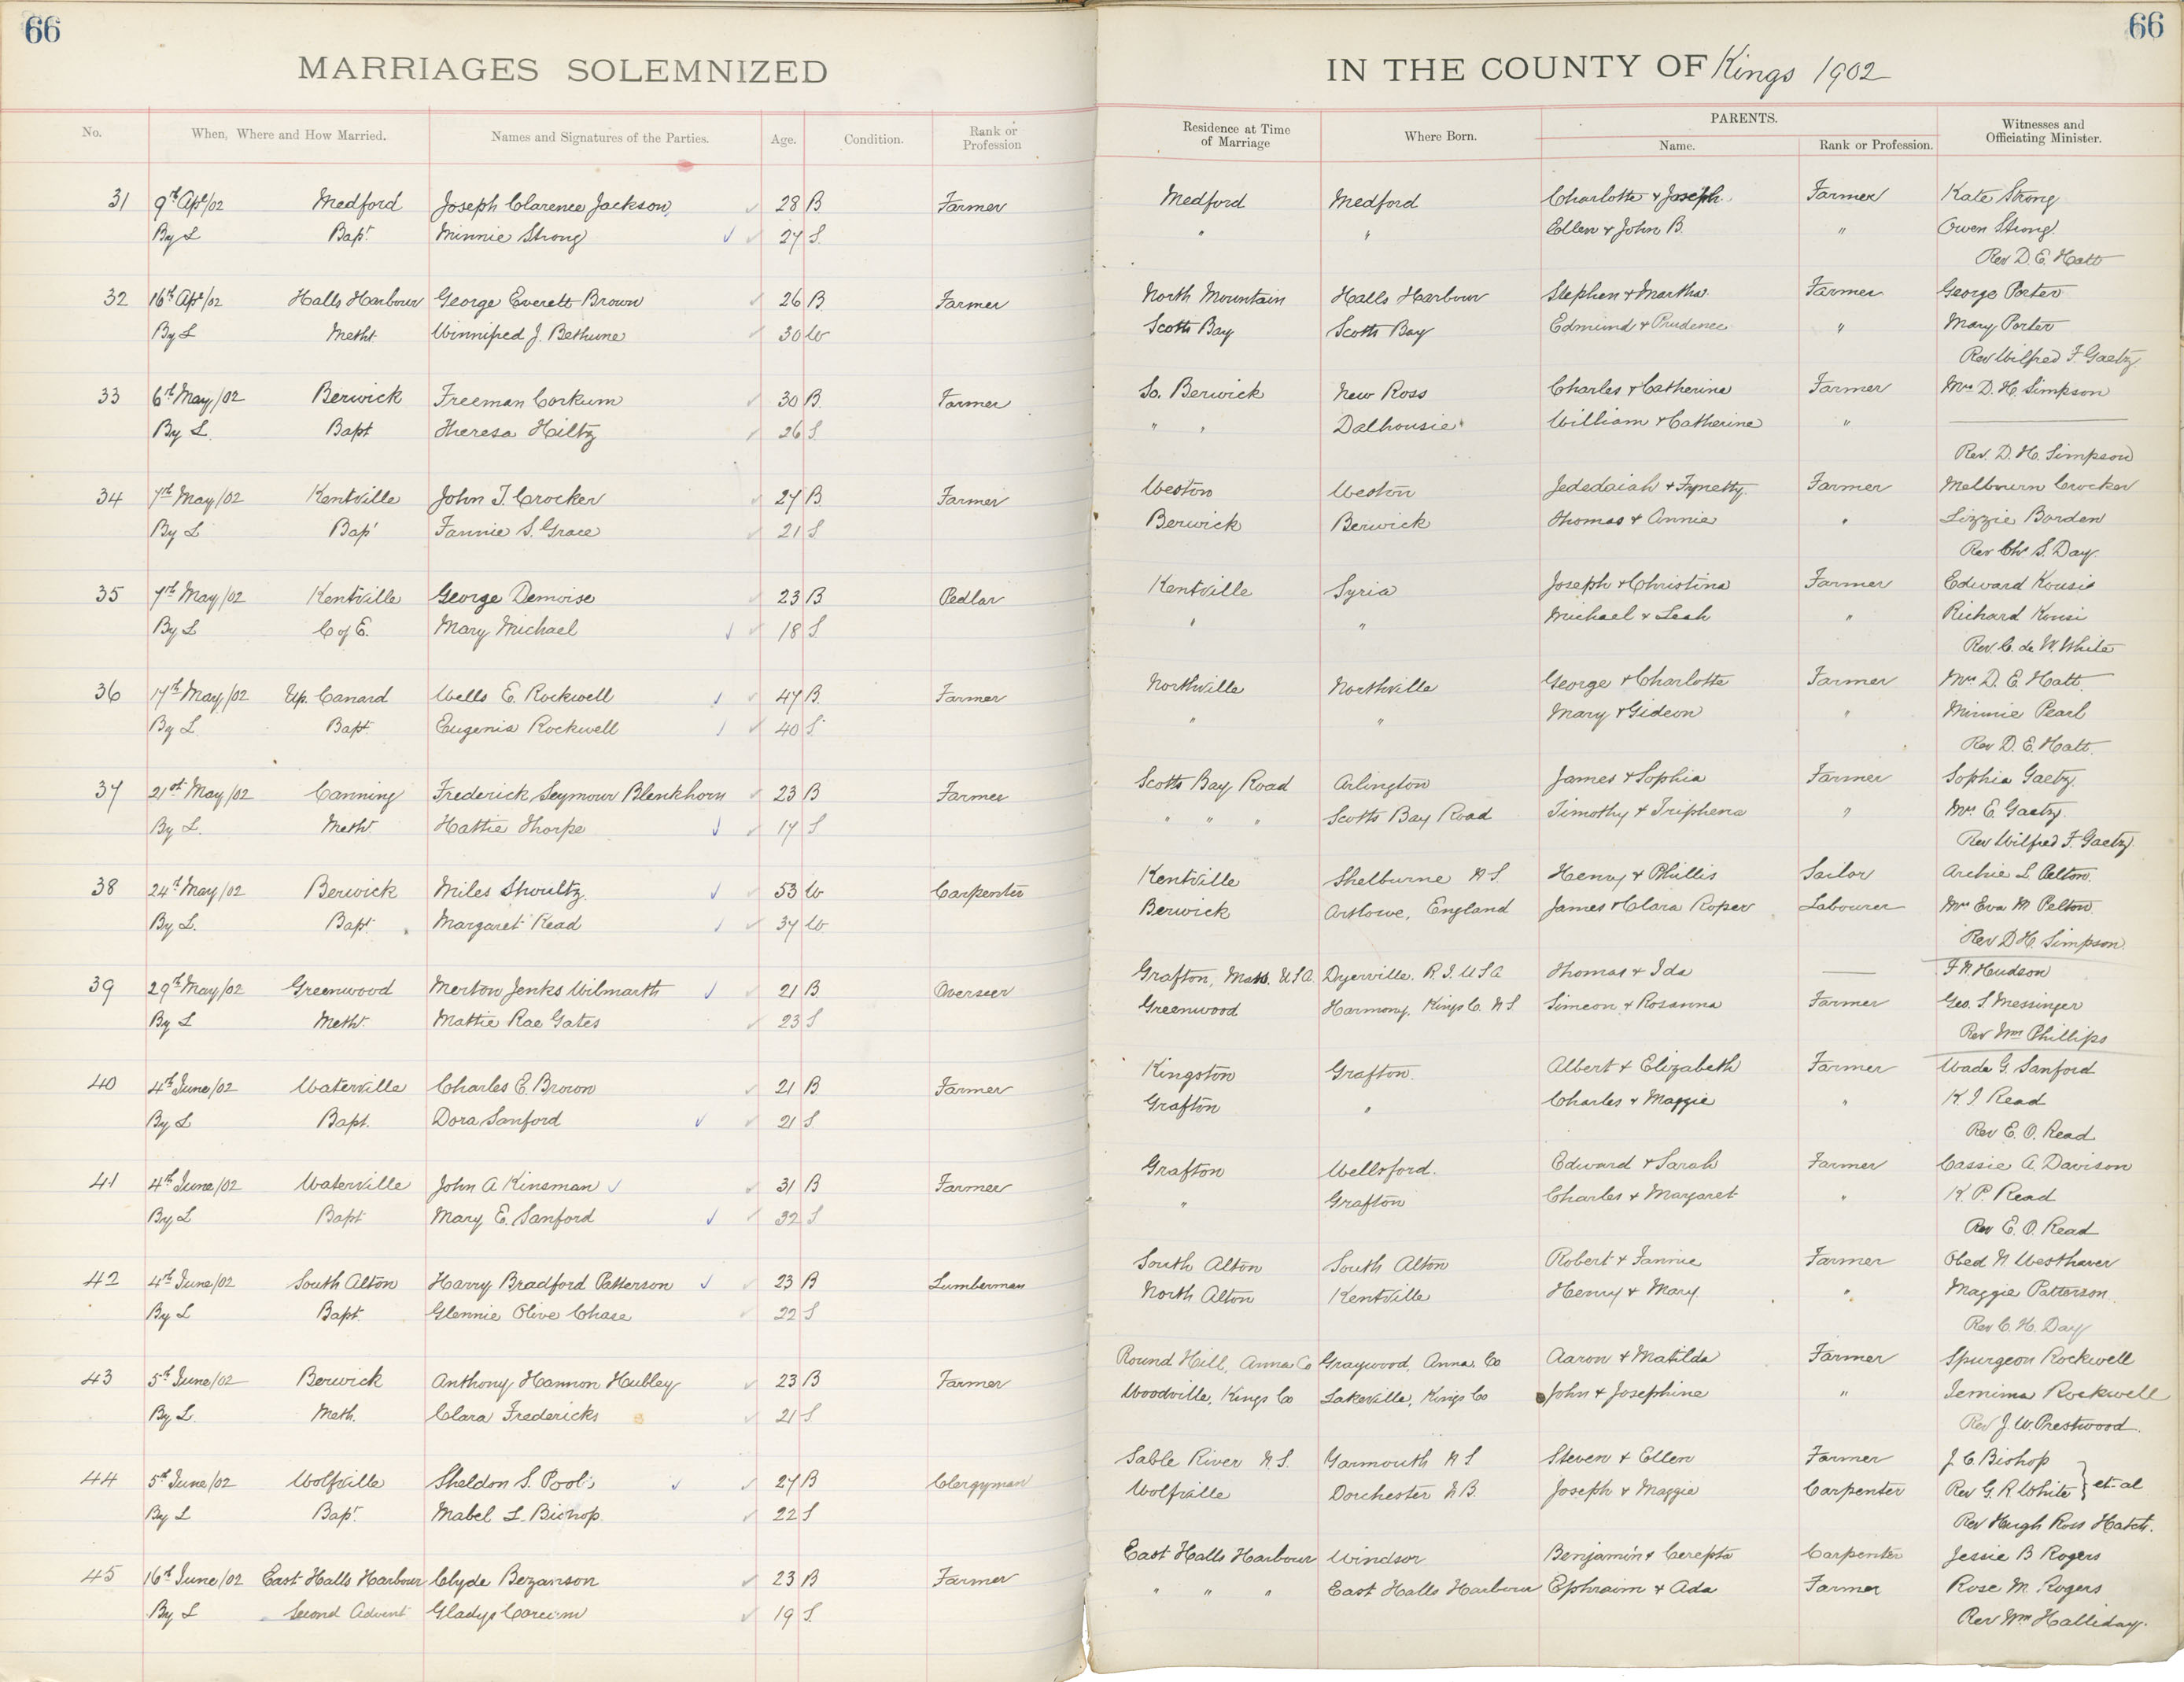 66
66
MARRIAGES SOLEMNIZED IN THE COUNTY OF Kings 1902
No. When, Where and How Married. Names and Signatures of the Parties. Age. Condition. Rank or Profession Residence at Time of Marriage Where Born. PARENTS. Name. Rank or Profession. Witnesses and Officiating Minister.
31 9th Apl/02 Medford Joseph Clarence Jackson 28 B Farmer Medford Medford Charlotte & Joseph Farmer Kate Strong
By L Bapt Minnie Strong 27 S. " " Ellen & John B. " Owen Strong
Rev D. E. Hatt
32 16th Apl/02 Halls Harbour George Everett Brown 26 B. Farmer North Mountain Halls Harbour Stephen & Martha Farmer George Porter
By L Metht. Winnifred J. Bethune 30 W Scotts Bay Scotts Bay Edmund & Prudence " Mary Porter
Rev Wilfred F. Gaetz
33 6th May/02 Berwick Freeman Corkum 30 B. Farmer So. Berwick New Ross Charles & Catherine Farmer Mrs D. H. Simpson
By L. Bapt Theresa Hiltz 26 S. " " Dalhousie William & Catherine "
Rev. D. H. Simpson
34 7th May/02 Kentville John T. Crocker 27 B. Farmer Weston Weston Jededaiah & Farmer Melbourn Crocker
By L Bapt Fannie S. Grace 21 S Berwick Berwick Thomas & Annie " Lizzie Borden
Rev Ch S. Day.
35 7th May/02 Kentville George Demoise 23 B Pedlar Kentville Syria Joseph & Christina Farmer Edward Kousie
By L C of E. Mary Michael 18 S " " Michael & Leah " Richard Kousi
Rev. C. de W. White
36 17th May/02 Up. Canard Wells E. Rockwell 47 B. Farmer Northville Northville George & Charlotte Farmer Mrs D. E. Hatt.
By L. Bapt. Eugenia Rockwell 40 S. " " Mary & Gideon " Minnie Pearl
Rev D. E. Hatt.
37 21st May/02 Canning Frederick Seymour Blenkhorn 23 B Farmer Scotts Bay Road Arlington James & Sophia Farmer Sophia Gaetz.
By L. Metht Hattie Thorpe 17 S " " " Scotts Bay Road Timothy & Triphena " Mrs E. Gaetz.
Rev Wilfred F. Gaetz.
38 24th May/02 Berwick Miles Shoultz 53 W Carpenter Kentville Shelburne N S. Henry & Phillis Sailor Archie L Pelton.
By L. Bapt. Margaret Read 37 W Berwick England James & Clara Roper Labourer Mrs Eva M Pelton
Rev D H. Simpson.
39 29th May/02 Greenwood Merton Jenks Wilmarth 21 B. Overseer Grafton, Mass. U S A. Dyerville. R. I. U S A Thomas & Ida — F. N. Hudson
By L Metht. Mattie Rae Gates 23 S Greenwood Harmony, Kings Co. N S Simeon & Rosanna Farmer Geo. S. Messinger
Rev Wm Phillips
40 4th June/02 Waterville Charles E. Brown 21 B Farmer Kingston Grafton. Albert & Elizabeth Farmer Wade G. Sanford
By L Bapt. Dora Sanford 21 S. Grafton " Charles & Maggie " K. I Read
Rev E. O. Read
41 4th June/02 Waterville John A Kinsman 31 B Farmer Grafton Wellsford. Edward & Sarah Farmer Cassie A. Davison
By L Bapt Mary E. Sanford 32 S " Grafton Charles & Margaret " K. P. Read
Rev E. O. Read
42 4th June/02 South Alton Harry Bradford Patterson 23 B Lumberman South Alton South Alton Robert & Fannie Farmer Obed N Westhaver
By L Bapt. Glennie Olive Chase 22 S North Alton Kentville Henry & Mary " Maggie Patterson
Rev C. H. Day
43 5th June/02 Berwick Anthony Hannon Hubley 23 B Farmer Round Hill, Anna Co Graywood, Anna. Co Aaron & Matilda Farmer Spurgeon Rockwell
By L. Meth. Clara Fredericks 21 S Woodville, Kings Co Lakeville, Kings Co John & Josephine " Jemima Rockwell
Rev J. W. Prestwood.
44 5th June/02 Wolfville Sheldon S. Poole 27 B Clergyman Sable River N. S. Yarmouth N S Steven & Ellen Farmer J. C Bishop
By L Bapt. Mabel L. Bishop 22 S Wolfville Dorchester N B. Joseph & Maggie Carpenter Rev G. R. White et al
Rev Hugh Ross Hatch.
45 16th June/02 East Halls Harbour Clyde Bezanson 23 B Farmer East Halls Harbour Windsor Benjamin & Cerepta Carpenter Jessie B Rogers
By L Second Advent Gladys Corcum 19 S. " " " East Halls Harbour Ephraim & Ada Farmer Rose M. Rogers
Rev Wm Halliday.